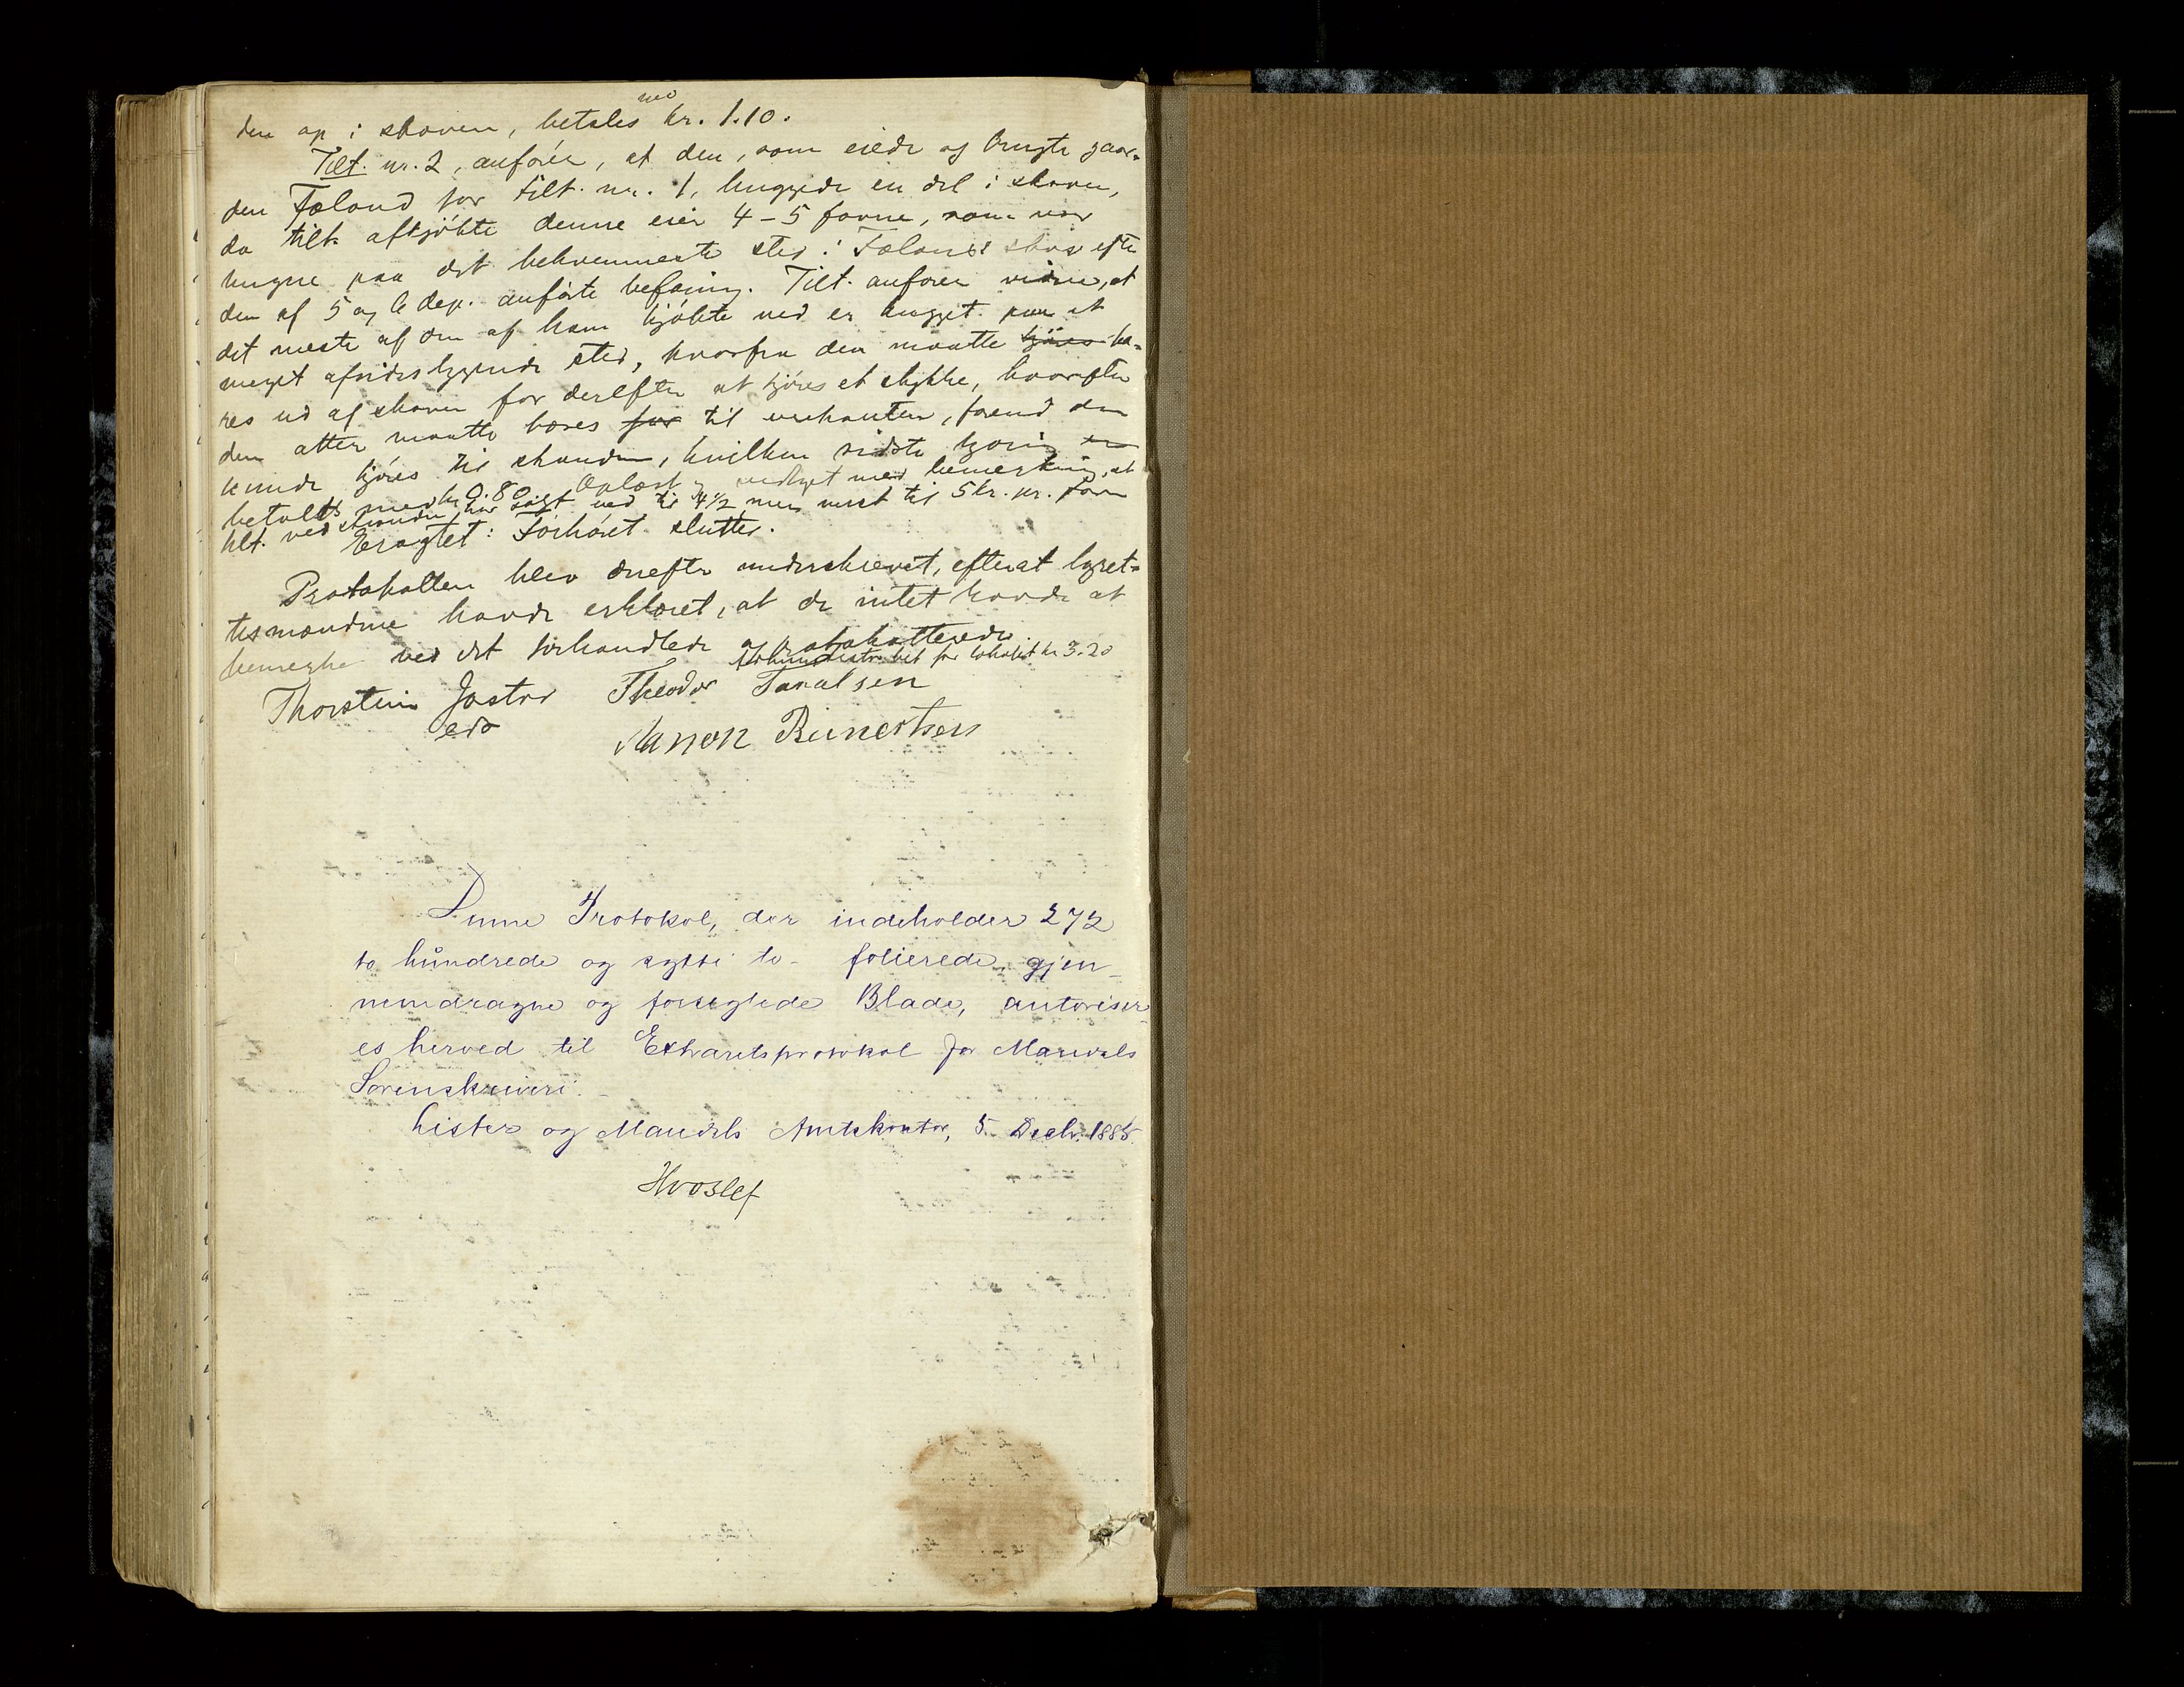 den op i skoven, betales med kr. 1.10.
Tilt. nr. 2, anfører, at den, som eiede og brugte gaar-
den Fæland før tilt. nr. 1, huggede en del i skoven,
da tilt. afkjøbte denne eier 4-5 favne, som var
hugne paa det bekvemmeste sted i Fælands skov efter
den af 5 og 6 dep. anførte befaring. Tilt. anfører videre, at
det meste af den af ham kjøbte ved er hugget paa et
meget afsides liggende sted, hvorfra den maatte kjøres bæ-
res ud af skoven for derefter at kjøres et stykke, hvorefter
den atter maatte bæres for til veikanten, førend den
kunde kjøres til stranden, hvilken sidste kjøring er
betaltes med kr 0.80. Oplæst og vedtaget med bemerkning, at
tilt. ved stranden har solgt ved til 4 1/2 men mest til 5 kr. pr. favn
Eragtet: Forhøret sluttes.
Protokollen blev derefter underskrevet, efterat lagret-
tesmændene havde erklæret, at de intet havde at
bemerke ved det forhandlede og protokollerede.
bet for lokalet kr 3.20
Thorstein Jastad Theodor Tarალsen
eds Aanon Reinertsen
Denne Protokol, der indeholder 272
to hundrede og sytti to - folierede, gjen-
nemdragne og forseglede Blade, autoriser-
es herved til Extraretsprotokol for Mandals
Sorenskriveri.
Lister og Mandals Amtskontor, 5. Decbr. 1885.
Hvoslef